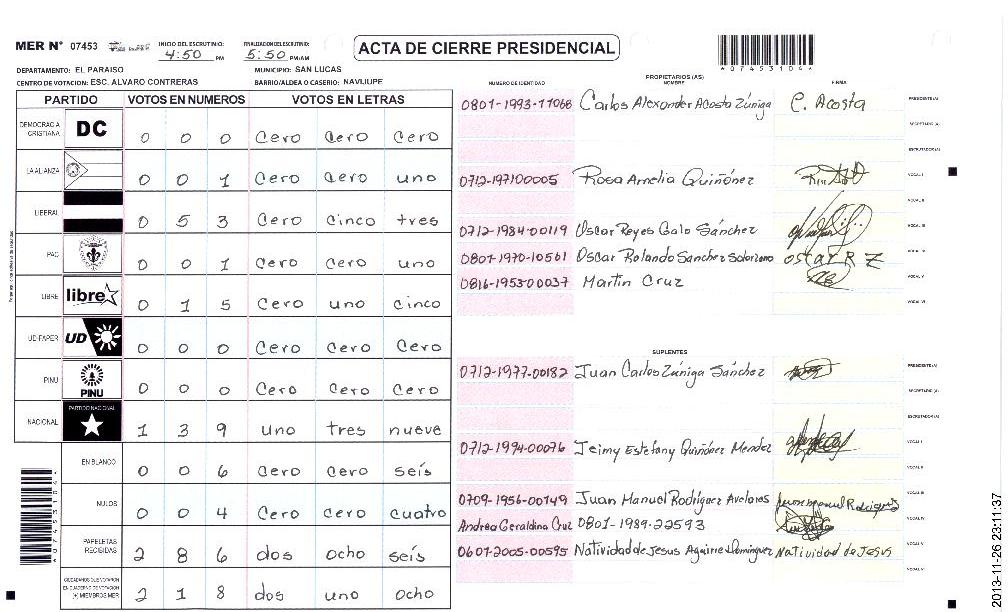 MER N° 07453 INICIO DEL ESCRUTINIO: 4:50 PM FINALIZACION DEL ESCRUTINIO: 5:50 PM/AM
ACTA DE CIERRE PRESIDENCIAL
*07453104*
DEPARTAMENTO: EL PARAISO MUNICIPIO: SAN LUCAS
CENTRO DE VOTACION: ESC. ALVARO CONTRERAS BARRIO/ALDEA O CASERIO: NAVIJUPE
PARTIDO VOTOS EN NUMEROS VOTOS EN LETRAS
DEMOCRACIA CRISTIANA DC 0 0 0 Cero Cero Cero
LA ALIANZA 0 0 1 Cero Cero uno
LIBERAL 0 5 3 Cero cinco tres
PAC 0 0 1 Cero Cero uno
LIBRE libre 0 1 5 Cero uno cinco
UD-FAPER UD 0 0 0 Cero Cero Cero
PINU PINU 0 0 0 Cero Cero Cero
NACIONAL PARTIDO NACIONAL 1 3 9 uno tres nueve
EN BLANCO 0 0 6 Cero Cero seis
NULOS 0 0 4 Cero Cero cuatro
PAPELETAS RECIBIDAS 2 8 6 dos ocho seis
CIUDADANOS QUE VOTARON EN CUADERNO DE VOTACION (+) MIEMBROS MER 2 1 8 dos uno ocho
*07453104*
PROPIETARIOS (AS)
NUMERO DE IDENTIDAD NOMBRE FIRMA
0801-1993-11068 Carlos Alexander Acosta Zúniga C. Acosta PRESIDENTE(A)
SECRETARIO (A)
ESCRUTADOR(A)
0712-197100005 Rosa Amelia Quiñónez VOCAL I
VOCAL II
0712-1984-00119 Oscar Reyes Galo Sánchez VOCAL III
0801-1970-10561 Oscar Rolando Sanchez Solorzano oscar R Z VOCAL IV
0816-1953-00037 Martin Cruz VOCAL V
VOCAL VI
SUPLENTES
0712-1977-00182 Juan Carlos Zúniga Sánchez PRESIDENTE(A)
SECRETARIO (A)
ESCRUTADOR(A)
0712-1994-00076 Jeimy Estefany Quiñónez Mendez VOCAL I
VOCAL II
0709-1956-00149 Juan Manuel Rodríguez Avelares Juan manuel Rodriguez VOCAL III
Andrea Geraldina Cruz 0801-1989-22593 VOCAL IV
0607-2005-00595 Natividad de Jesus Aguirre Domínguez Natividad de Jesus VOCAL V
VOCAL VI
2013-11-26 23:11:37